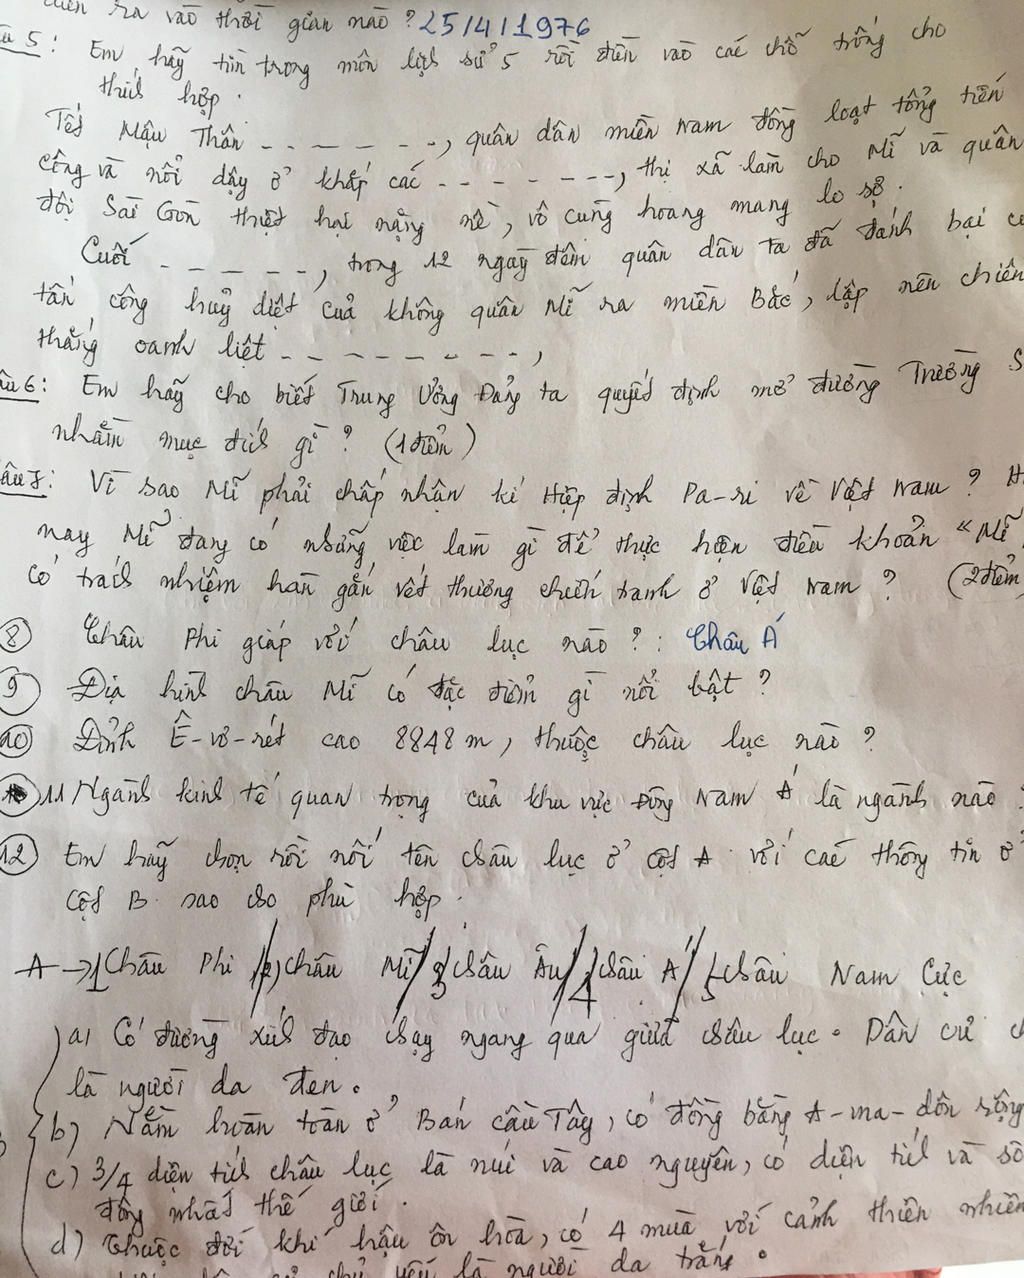 diễn ra vào thời gian nào ? 25/4/1976
5 : Em hãy tìm trong môn lịch sử 5 rồi điền vào các chỗ trống cho
thích hợp .
Tết Mậu Thân - - - - - - -, quân dân miền Nam đồng loạt tổng tiến
công và nổi dậy ở khắp các - - - - - - - -, thị xã làm cho Mĩ và quân
đội Sài Gòn thiệt hại nặng nề, vô cùng hoang mang lo sợ .
Cuối - - - - - -, trong 12 ngày đêm quân dân ta đã đánh bại
tấn công huỷ diệt của không quân Mĩ ra miền Bắc, lập nên chiến
thắng oanh liệt - - - - - - - - -,
6 : Em hãy cho biết Trung Ương Đảng ta quyết định mở đường Trường S
nhằm mục đích gì ? (1 điểm)
7 : Vì sao Mĩ phải chấp nhận kí Hiệp định Pa-ri về Việt Nam ? H
nay Mĩ đang có những việc làm gì để thực hiện điều khoản “Mĩ
có trách nhiệm hàn gắn vết thương chiến tranh ở Việt Nam ? (2 điểm
8 Châu Phi giáp với châu lục nào ? : Châu Á
9 Địa hình châu Mĩ có đặc điểm gì nổi bật ?
10 Đỉnh Ê-vơ-rét cao 8848 m, thuộc châu lục nào ?
11 Ngành kinh tế quan trọng của khu vực Đông Nam Á là ngành nào ?
12 Em hãy chọn rồi nối tên châu lục ở cột A với các thông tin ở
cột B sao cho phù hợp .
A → 1 Châu Phi / 2) châu Mĩ / 3 châu Âu / 4 châu Á / 5 châu Nam Cực
a) Có đường xích đạo chạy ngang qua giữa châu lục. Dân cư
là người da đen.
b) Nằm hoàn toàn ở Bán cầu Tây, có đồng bằng A-ma-dôn rộng
c) 3/4 diện tích châu lục là núi và cao nguyên, có diện tích và số
đông nhất thế giới .
d) Thuộc đới khí hậu ôn hòa, có 4 mùa với cảnh thiên nhiên
chủ yếu là người da trắng.